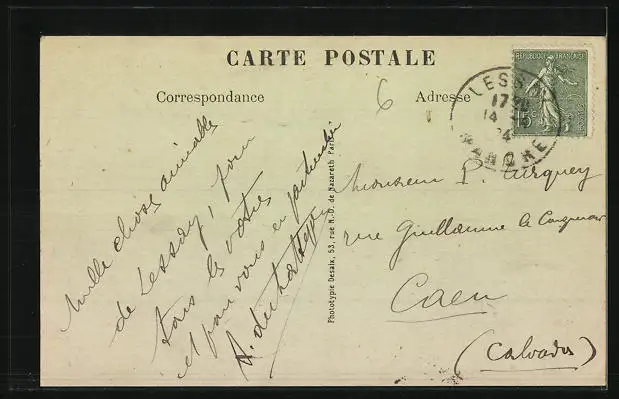 CARTE POSTALE
Correspondance
Adresse
6
REPUBLIQUE FRANÇAISE
15c
LESSAY
17
14
24
MANCHE
Mille choses aimables
de Lessay, pour
tous les vôtres
et pour vous en particulier
A.
Phototypie Desaix, 53, rue N.-D. de Nazareth Paris
Monsieur P. Turquey
rue Guillaume le Conquérant
Caen
(Calvados)